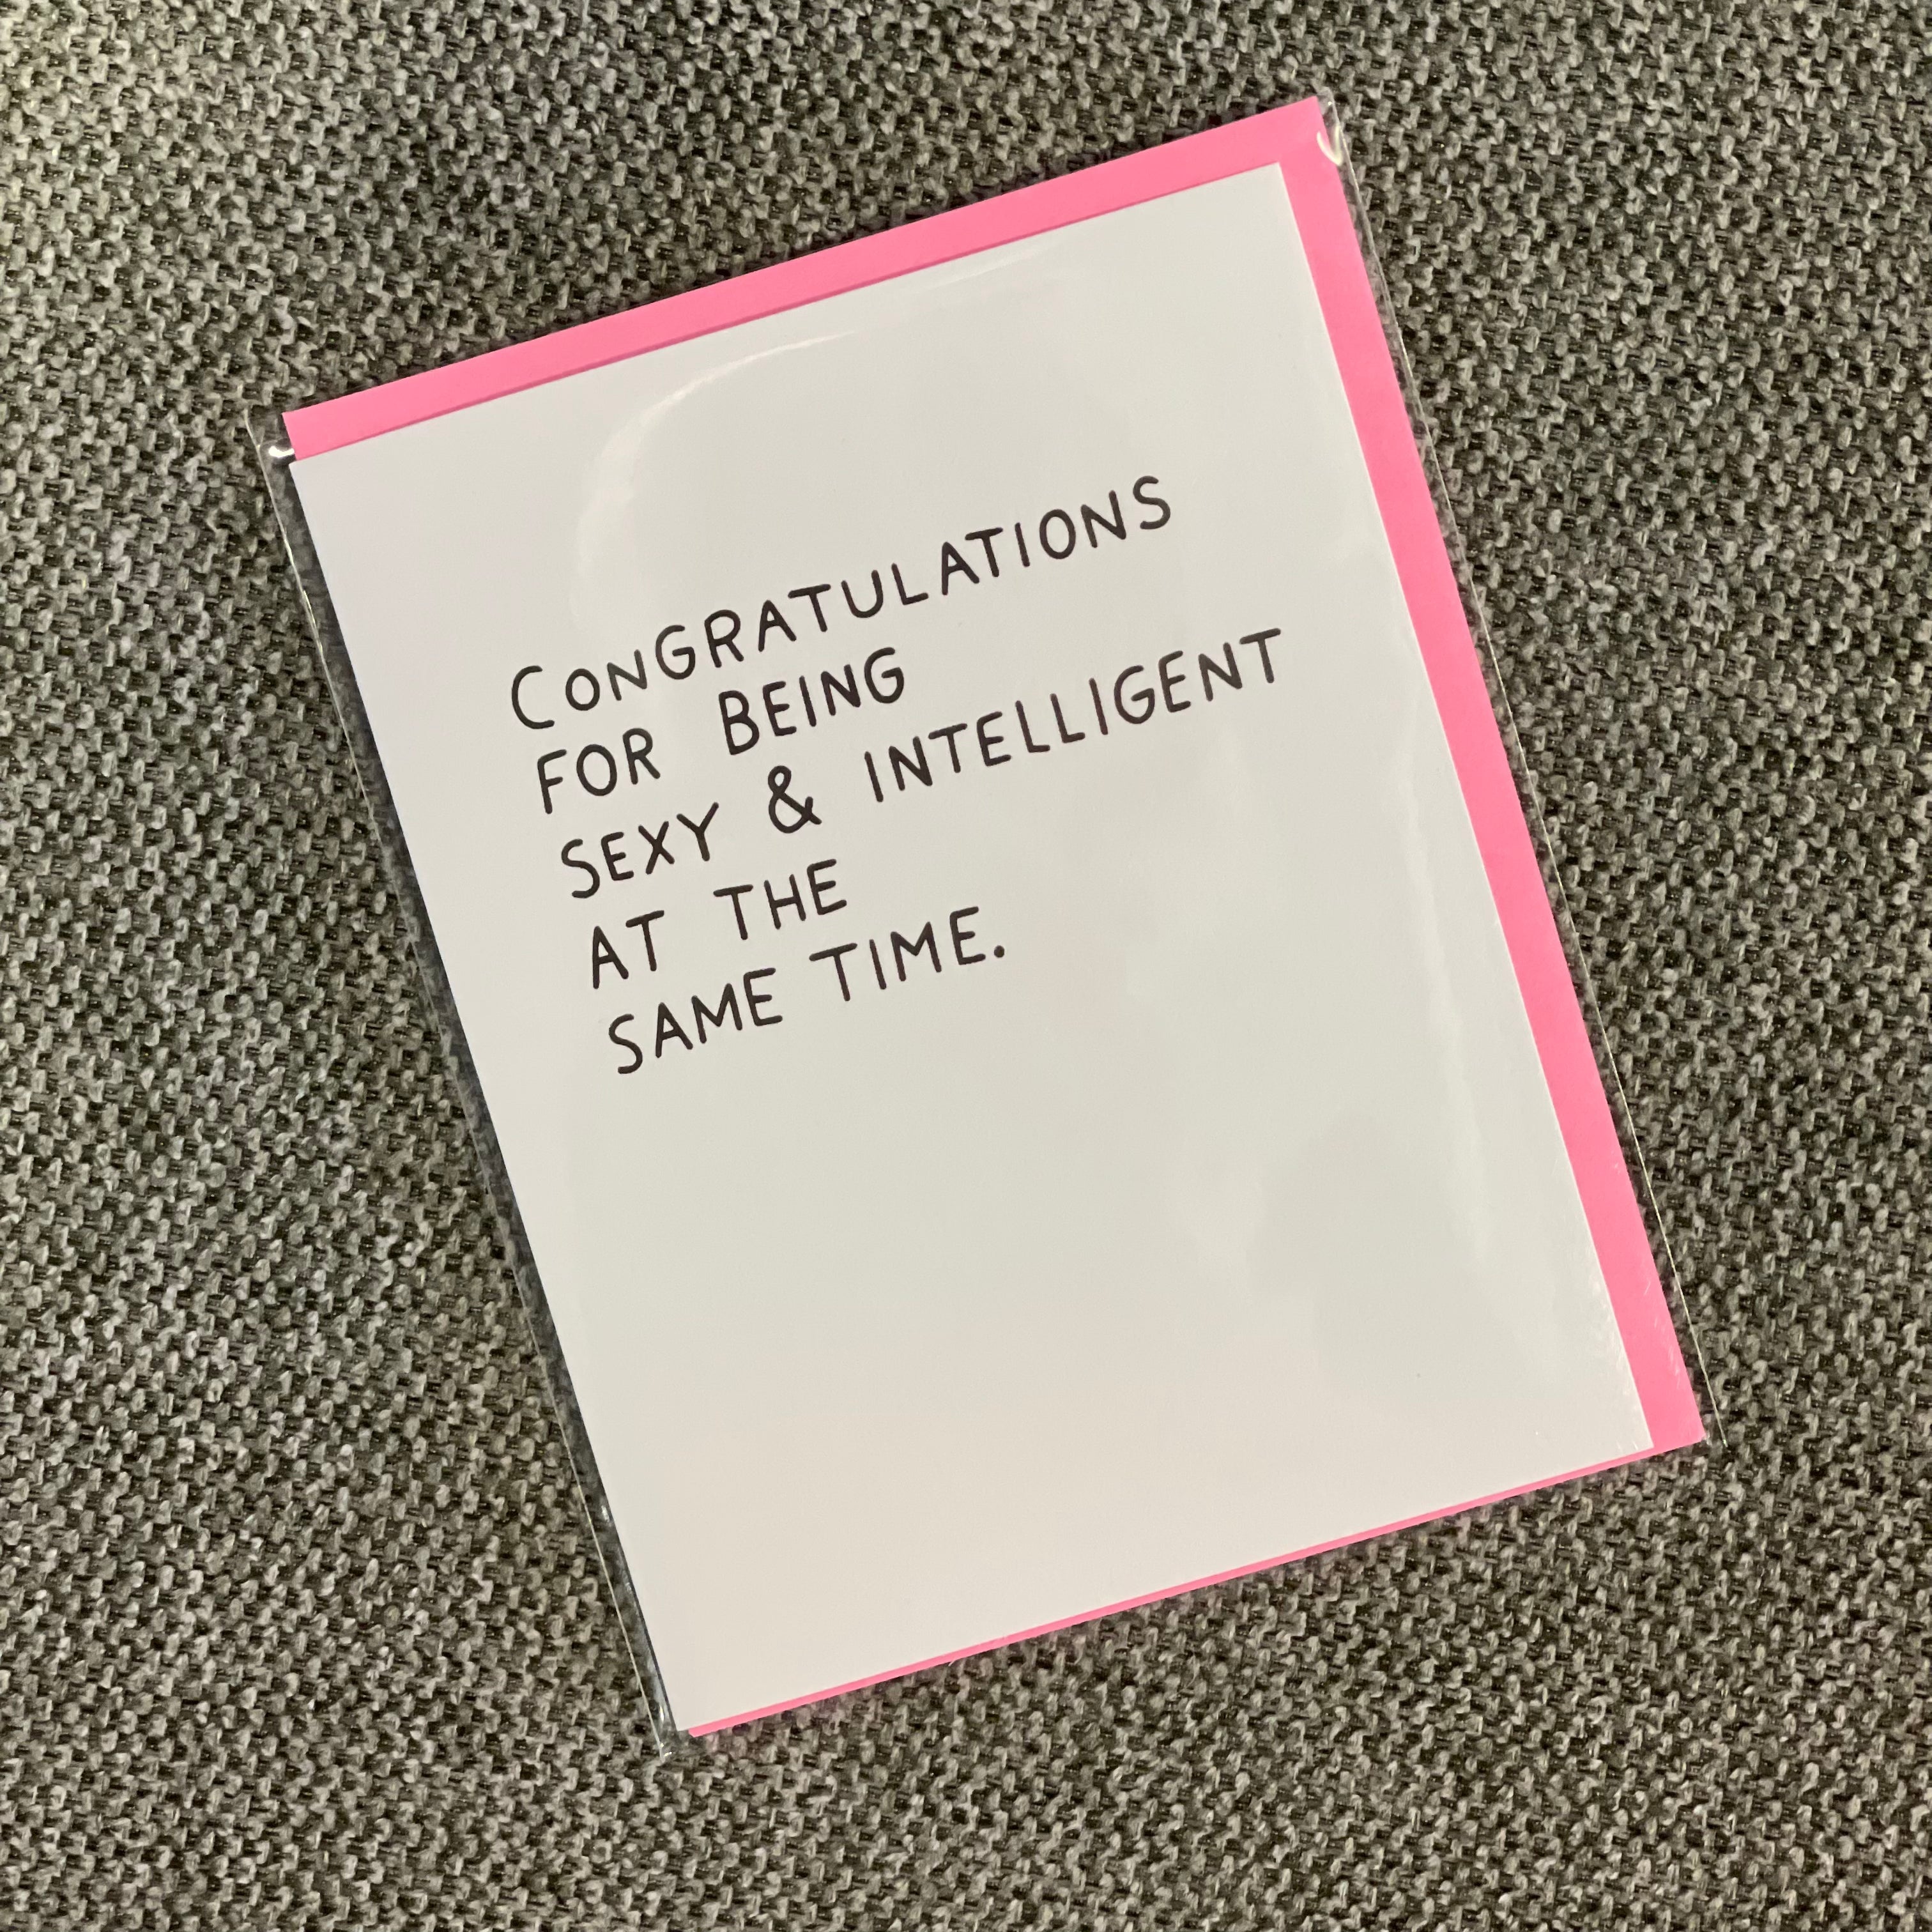 CONGRATULATIONS
FOR BEING
SEXY & INTELLIGENT
AT THE
SAME TIME.